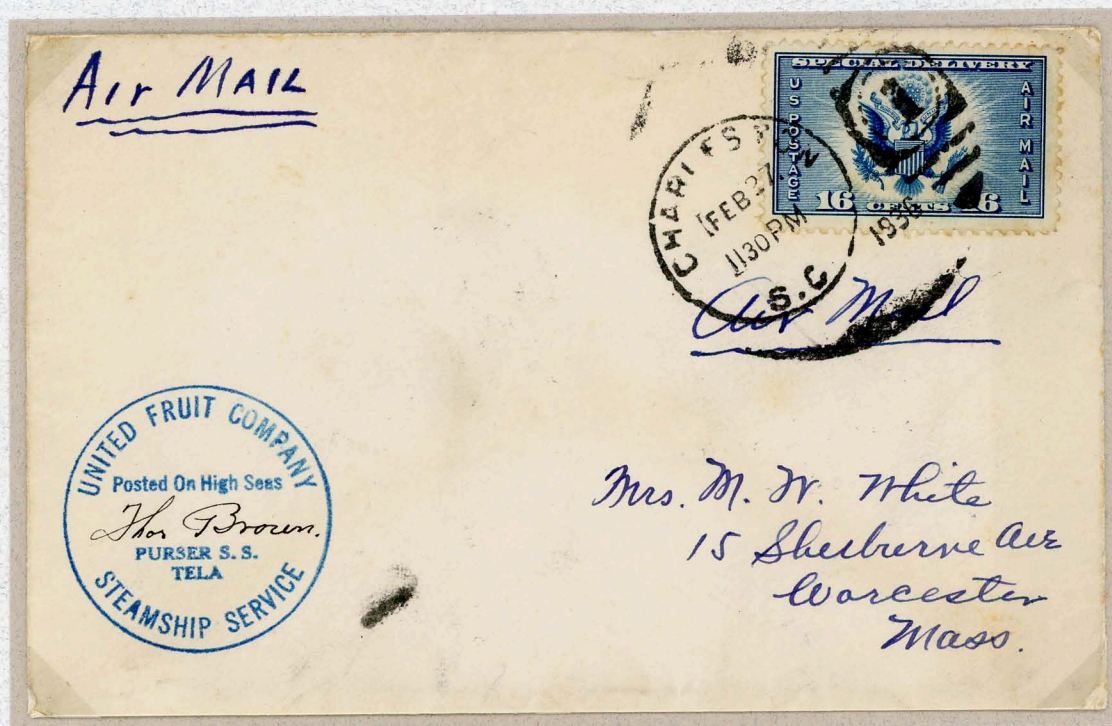 Air MAIL
SPECIAL DELIVERY
US POSTAGE
AIR MAIL
16 CENTS 16
CHARLESTON
FEB 27.
1130PM
1936
S.C.
Air Mail
UNITED FRUIT COMPANY
Posted On High Seas
Thos Brown.
PURSER S. S.
TELA
STEAMSHIP SERVICE
Mrs. M. W. White
15 Sherburne Ave
Worcester
Mass.